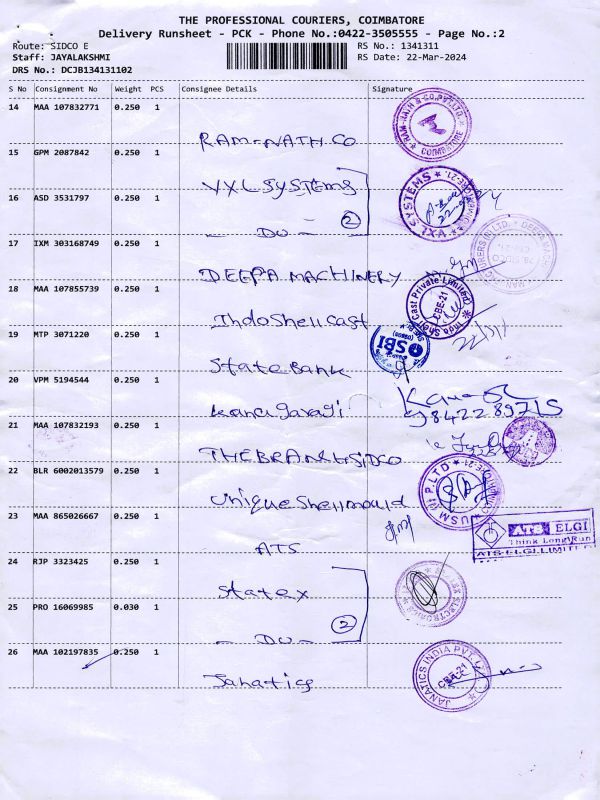 THE PROFESSIONAL COURIERS, COIMBATORE
Delivery Runsheet - PCK - Phone No.:0422-3505555 - Page No.:2
Route: SIDCO E
RS No.: 1341311
Staff: JAYALAKSHMI
RS Date: 22-Mar-2024
DRS No.: DCJB134131102
S No Consignment No Weight PCS Consignee Details Signature
14 MAA 107832771 0.250 1
RAM-NATH.CO
RAM-NATH & CO.PVT.LTD. COIMBATORE
15 GPM 2087842 0.250 1
VXL SYSTEMS
16 ASD 3531797 0.250 1
- DO - 2
SYSTEMS
17 IXM 303168749 0.250 1
DEEPA MACHINERY
18 MAA 107855739 0.250 1
IndoShellcast
Indo Shell Cast Private Limited CBE-21
22/3/
19 MTP 3071220 0.250 1
State Bank
SBI
20 VPM 5194544 0.250 1
9842289715
21 MAA 107832193 0.250 1
THE BRANCH SIDCO
22 BLR 6002013579 0.250 1
Unique Shell mould
USM (I) P.LTD
23 MAA 865026667 0.250 1
ATS
ATS ELGI
Think Long Run
ATS ELGI LIMITED
24 RJP 3323425 0.250 1
Statex
25 PRO 16069985 0.030 1
- DO - 2
26 MAA 102197835 0.250 1
Janatics
JANATICS INDIA PVT. CBE-21